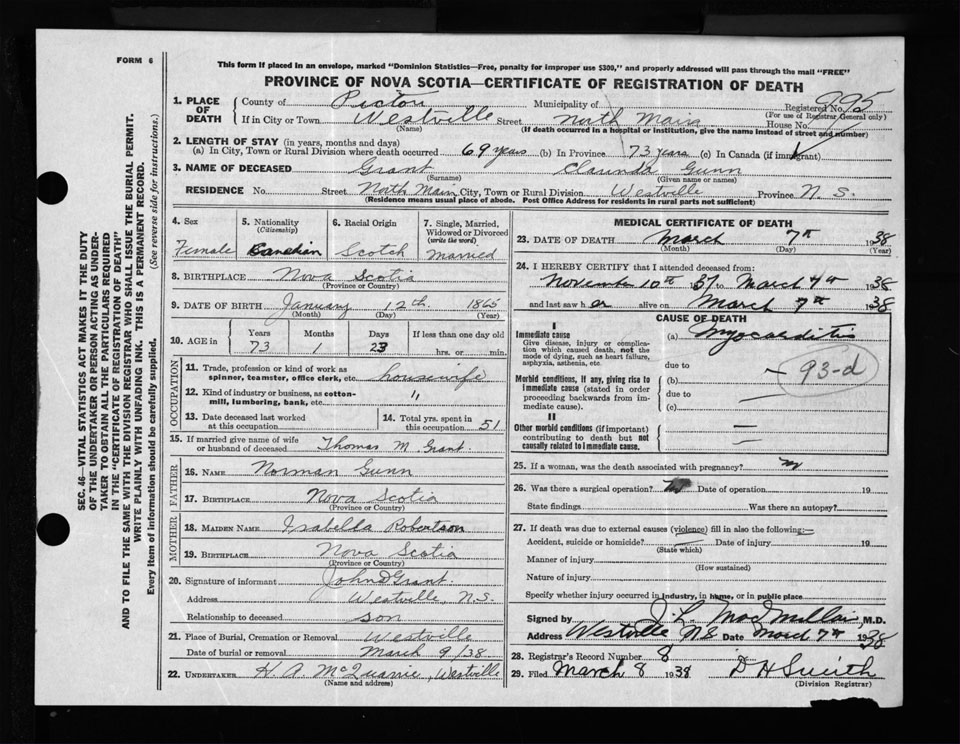 FORM 6
This form if placed in an envelope, marked "Dominion Statistics—Free, penalty for improper use $300," and properly addressed will pass through the mail "FREE"
PROVINCE OF NOVA SCOTIA—CERTIFICATE OF REGISTRATION OF DEATH
1. PLACE OF DEATH County of Pictou Municipality of Registered No. 395
(For use of Registrar General only)
If in City or Town Westville Street North Main House No.
(Name) (If death occurred in a hospital or institution, give the name instead of street and number)
2. LENGTH OF STAY (in years, months and days)
(a) In City, Town or Rural Division where death occurred 69 years (b) In Province 73 years (c) In Canada (if immigrant)
3. NAME OF DECEASED Grant Clarinda Gunn
(Surname) (Given name or names)
RESIDENCE No. Street North Main City, Town or Rural Division Westville Province N. S.
(Residence means usual place of abode. Post Office Address for residents in rural parts not sufficient)
4. Sex Female
5. Nationality (Citizenship) Canadian
6. Racial Origin Scotch
7. Single, Married, Widowed or Divorced (write the word) Married
8. BIRTHPLACE Nova Scotia
(Province or Country)
9. DATE OF BIRTH January 12th 1865
(Month) (Day) (Year)
10. AGE in Years Months Days If less than one day old
73 1 23 hrs. or min.
OCCUPATION
11. Trade, profession or kind of work as spinner, teamster, office clerk, etc. housewife
12. Kind of industry or business, as cotton-mill, lumbering, bank, etc. "
13. Date deceased last worked at this occupation
14. Total yrs. spent in this occupation 51
15. If married give name of wife or husband of deceased Thomas M. Grant
FATHER
16. NAME Norman Gunn
17. BIRTHPLACE Nova Scotia
(Province or Country)
MOTHER
18. MAIDEN NAME Isabella Robertson
19. BIRTHPLACE Nova Scotia
(Province or Country)
20. Signature of informant John D Grant
Address Westville, N.S.
Relationship to deceased son
21. Place of Burial, Cremation or Removal Westville
Date of burial or removal March 9/38.
22. UNDERTAKER H. A. McQuarrie, Westville
(Name and address)
MEDICAL CERTIFICATE OF DEATH
23. DATE OF DEATH March 7th 1938
(Month) (Day) (Year)
24. I HEREBY CERTIFY that I attended deceased from:
November 10th 1937 to March 7th 1938
and last saw her alive on March 7th 1938
CAUSE OF DEATH
I
Immediate cause (a) Myocarditis
Give disease, injury or complication which caused death, not the mode of dying, such as heart failure, asphyxia, asthenia, etc.
due to
93-d
Morbid conditions, if any, giving rise to immediate cause (stated in order proceeding backwards from immediate cause).
(b)
due to
(c)
II
Other morbid conditions (if important) contributing to death but not causally related to immediate cause.
25. If a woman, was the death associated with pregnancy?
26. Was there a surgical operation? Date of operation 19
State findings Was there an autopsy?
27. If death was due to external causes (violence) fill in also the following:
Accident, suicide or homicide? Date of injury 19
(State which)
Manner of injury
(How sustained)
Nature of injury
Specify whether injury occurred in industry, in home, or in public place
Signed by J. L. MacMillan, M.D.
Address Westville N S Date March 7th 1938
28. Registrar's Record Number 8
29. Filed March 8 1938 D H Smith
(Division Registrar)
SEC. 46—VITAL STATISTICS ACT MAKES IT THE DUTY
OF THE UNDERTAKER OR PERSON ACTING AS UNDER-
TAKER TO OBTAIN ALL THE PARTICULARS REQUIRED
IN THE "CERTIFICATE OF REGISTRATION OF DEATH"
AND TO FILE THE SAME WITH THE DIVISION REGISTRAR WHO SHALL ISSUE THE BURIAL PERMIT.
WRITE PLAINLY WITH UNFADING INK. THIS IS A PERMANENT RECORD.
Every item of information should be carefully supplied. (See reverse side for instructions.)